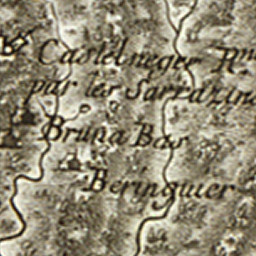 Castelneger
par les Sarrazins
Bruna Bas
Beringuier